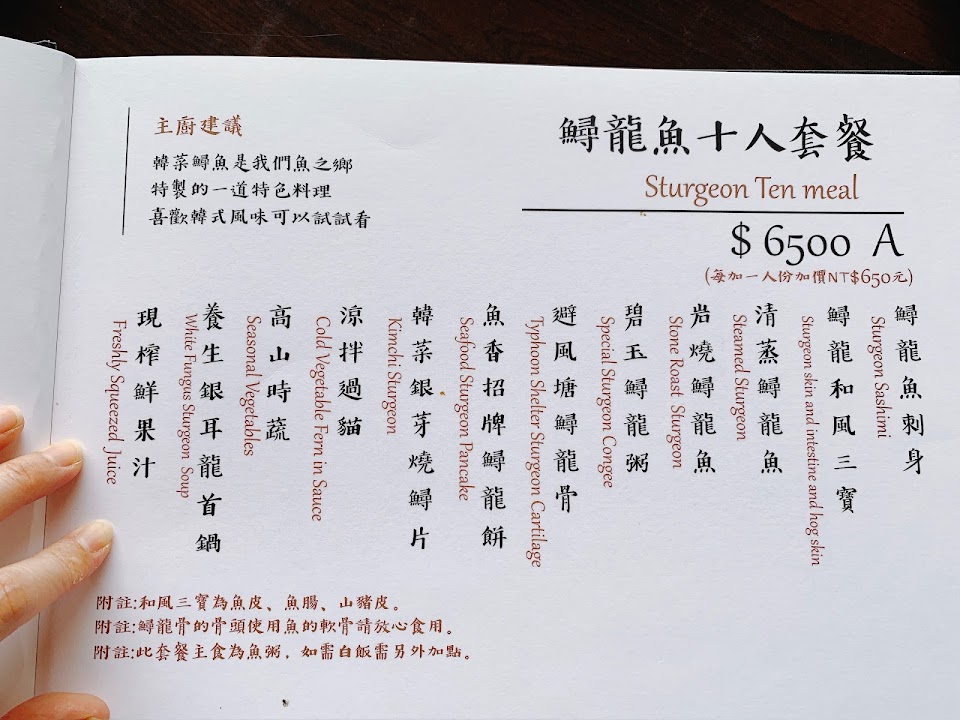 鱘龍魚十人套餐
Sturgeon Ten meal
$ 6500 A
(每加一人份加價NT$650元)
主廚建議
韓菜鱘魚是我們魚之鄉
特製的一道特色料理
喜歡韓式風味可以試試看
鱘龍魚刺身
Sturgeon Sashimi
鱘龍和風三寶
Sturgeon skin and intestine and hog skin
清蒸鱘龍魚
Steamed Sturgeon
岩燒鱘龍魚
Stone Roast Sturgeon
碧玉鱘龍粥
Special Sturgeon Congee
避風塘鱘龍骨
Typhoon Shelter Sturgeon Cartilage
魚香招牌鱘龍餅
Seafood Sturgeon Pancake
韓菜銀芽燒鱘片
Kimchi Sturgeon
涼拌過貓
Cold Vegetable Fern in Sauce
高山時蔬
Seasonal Vegetables
養生銀耳龍首鍋
White Fungus Sturgeon Soup
現榨鮮果汁
Freshly Squeezed Juice
附註:和風三寶為魚皮、魚腸、山豬皮。
附註:鱘龍骨的骨頭使用魚的軟骨請放心食用。
附註:此套餐主食為魚粥，如需白飯需另外加點。